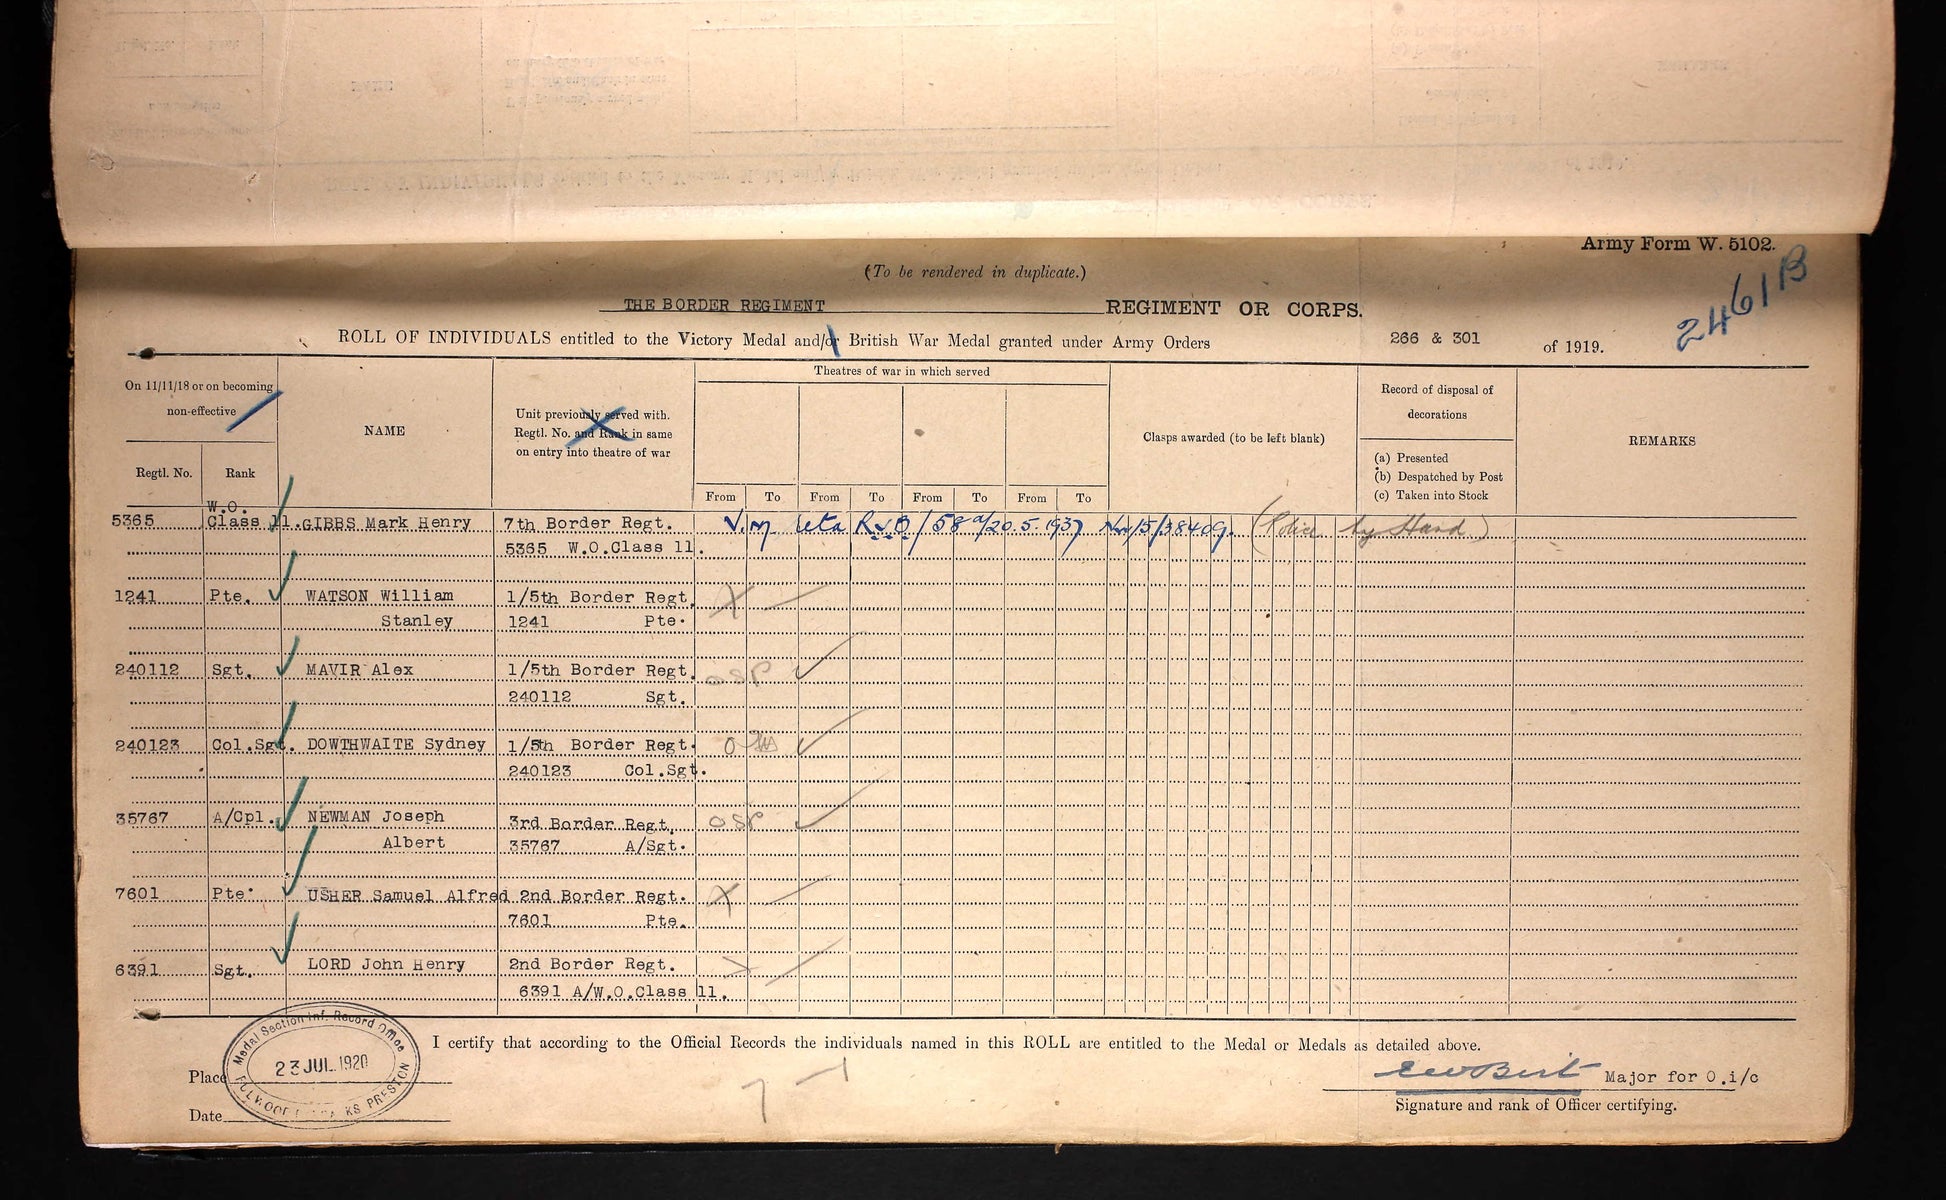 Army Form W. 5102.
(To be rendered in duplicate.)
2461B
THE BORDER REGIMENT REGIMENT OR CORPS.
ROLL OF INDIVIDUALS entitled to the Victory Medal and/or British War Medal granted under Army Orders 266 & 301 of 1919.
On 11/11/18 or on becoming
non-effective
Regtl. No.
Rank
NAME
Unit previously served with.
Regtl. No. and Rank in same
on entry into theatre of war
Theatres of war in which served
From To From To From To From To
Clasps awarded (to be left blank)
Record of disposal of
decorations
(a) Presented
(b) Despatched by Post
(c) Taken into Stock
REMARKS
W.O.
5365 Class 11. GIBBS Mark Henry 7th Border Regt. V.M. R.V.B/58 20.5.1937 (Police by Hand)
5365 W.O.Class 11.
1241 Pte. WATSON William 1/5th Border Regt. X
Stanley 1241 Pte.
240112 Sgt. MAVIR Alex 1/5th Border Regt. OSP
240112 Sgt.
240123 Col.Sgt. DOWTHWAITE Sydney 1/5th Border Regt.
240123 Col.Sgt.
35767 A/Cpl. NEWMAN Joseph 3rd Border Regt. OSP
Albert 35767 A/Sgt.
7601 Pte. USHER Samuel Alfred 2nd Border Regt. X
7601 Pte.
6391 Sgt. LORD John Henry 2nd Border Regt.
6391 A/W.O.Class 11.
I certify that according to the Official Records the individuals named in this ROLL are entitled to the Medal or Medals as detailed above.
Medal Section Inf. Record Office
23 JUL 1920
PRESTON
Place
Date
Major for O.i/c
Signature and rank of Officer certifying.